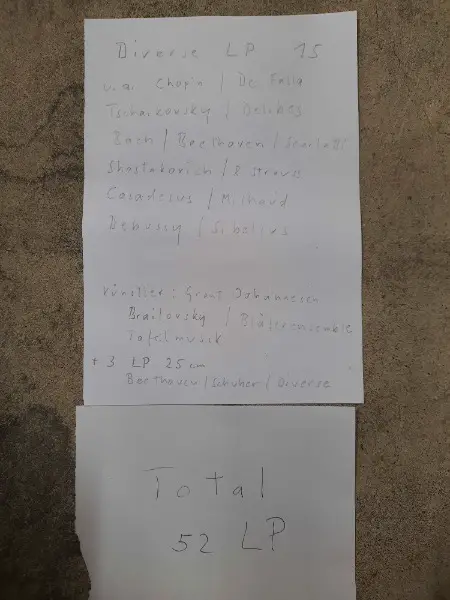 Diverse LP 15
u. a. Chopin / De Falla
Tschaikovsky / Delibes
Bach / Beethoven / Scarlatti
Shostakovich / R Strauss
Casadesus / Milhaud
Debussy / Sibelius
Künstler: Grant Johannesen
Brailovsky / Bläserensemble
Tafelmusik
+ 3 LP 25 cm
Beethoven / Schuber / Diverse
Total
52 LP